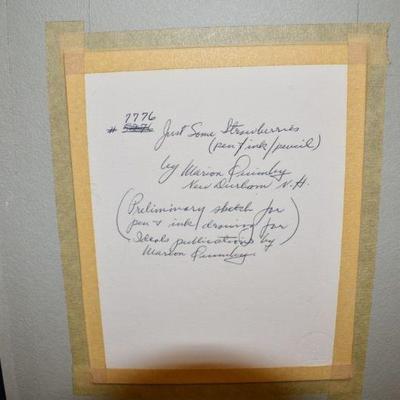 7776
# 5276 Just Some Strawberries
(pen & ink/pencil)
by Marion Quimby
New Durham N.H.
(Preliminary sketch for
pen & ink drawing for
Ideals publications by
Marion Quimby)